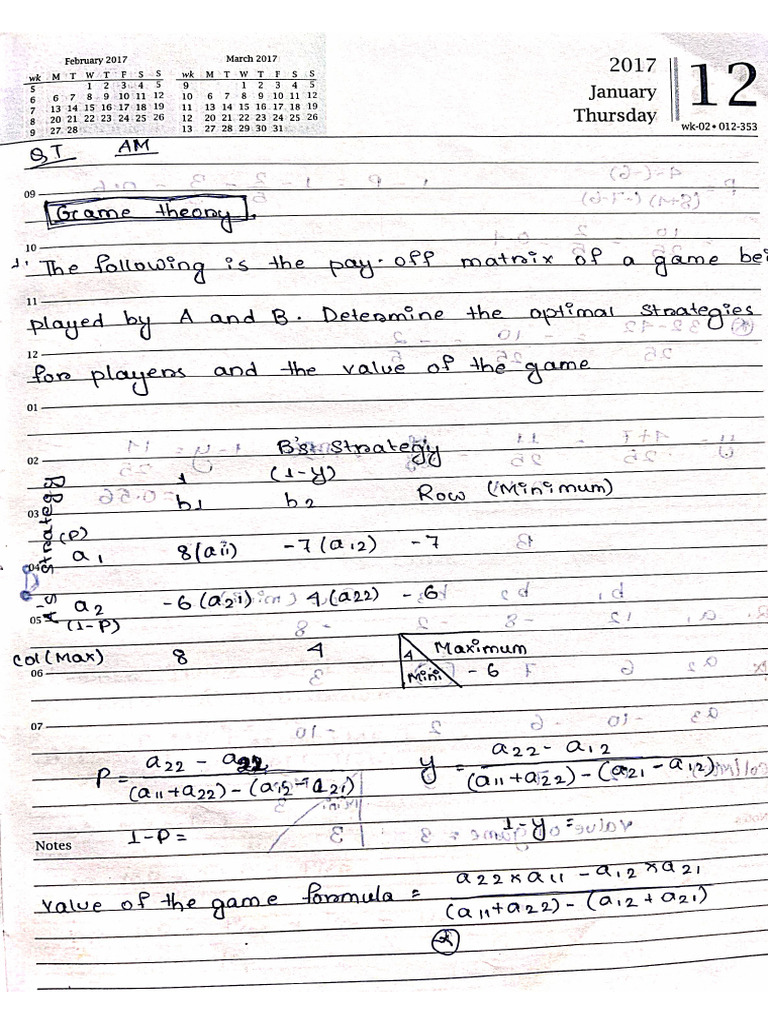 February 2017
wk M T W T F S S
5 1 2 3 4 5
6 6 7 8 9 10 11 12
7 13 14 15 16 17 18 19
8 20 21 22 23 24 25 26
9 27 28
March 2017
wk M T W T F S S
9 1 2 3 4 5
10 6 7 8 9 10 11 12
11 13 14 15 16 17 18 19
12 20 21 22 23 24 25 26
13 27 28 29 30 31
2017
January
Thursday
12
wk-02 • 012-353
QT AM
09
Game theory
10
1. The following is the pay-off matrix of a game bei
11
played by A and B. Determine the optimal strategies
12
for players and the value of the game
01
B's Strategy
02
y (1-y)
b1 b2 Row (Minimum)
03
A's Strategy
(P)
a1 8(a11) -7(a12) -7
04
a2 -6(a21) 4(a22) -6
05
(1-P)
Col(Max) 8 4 4 Maximum
Mini -6
06
07
P = a22 - a21 / (a11+a22) - (a12 - a21)
y = a22 - a12 / (a11+a22) - (a21 - a12)
Notes 1-P = 1-y =
value of the game formula = a22 x a11 - a12 x a21 / (a11+a22) - (a12 + a21)